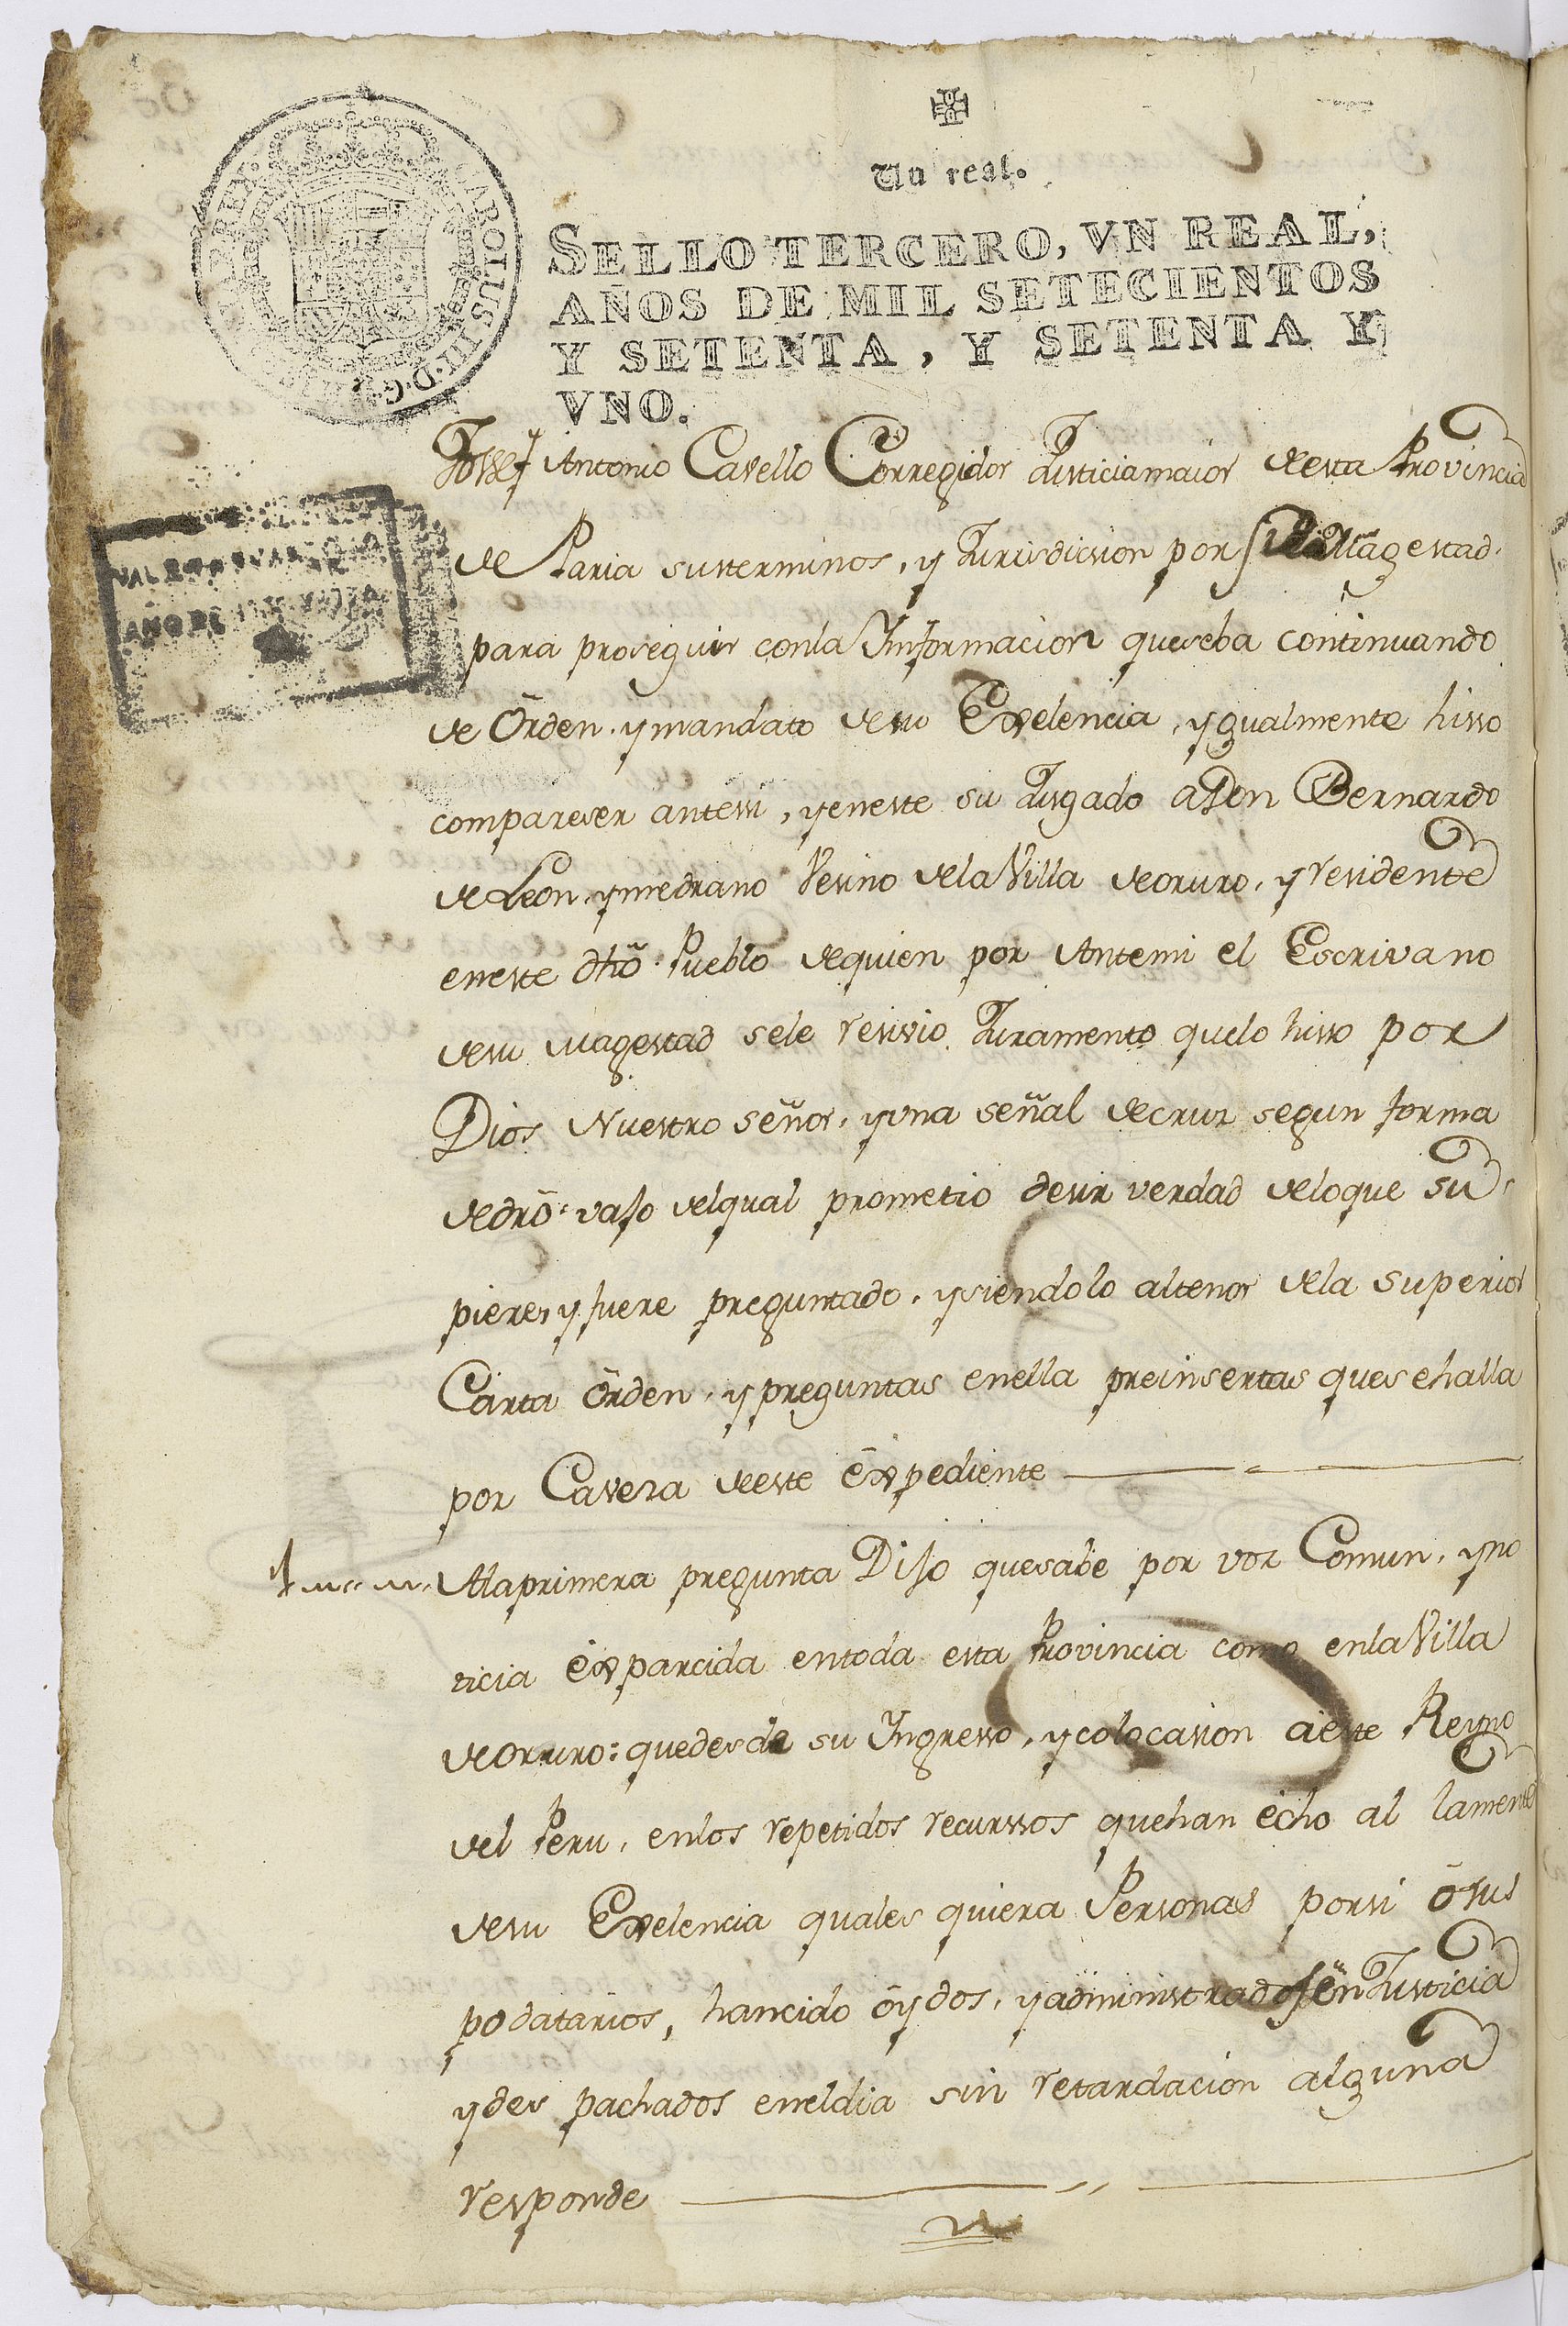 Un real.
SELLO TERCERO, VN REAL,
AÑOS DE MIL SETECIENTOS
Y SETENTA, Y SETENTA Y
VNO.
CAROLUS III D.G. REX
AÑO DE
Josef Antonio Cavello Corregidor Justiciamaior desta Provincia
de Paria susterminos, y Jurisdission por su Magestad.
para proseguir conla Ynformacion queseba continuando
de Orden, ymandato desu Exelencia, ygualmente hisso
compareser antessi, yeneste su Jusgado aDon Bernardo
de Leon, ymedrano Vesino dela Villa deoruro, yresidente
eneste dhō Pueblo dequien por Antemi el Escrivano
desu Magestad sele resivio Juramento quelo hisso por
Dios Nuestro señor, yvna señal decruz segun forma
dedrō vajo delqual prometio desir verdad deloque su
piere, y fuere preguntado, ysiendolo altenor dela superior
Carta orden, ypreguntas enella preinsertas quesehalla
por Cavesa deeste expediente
1 Alaprimera pregunta Dijo quesabe por voz Comun, yno
ticia exparcida entoda esta Provincia como enla Villa
deoruro: quedesde su Yngresso, ycolocasion aeste Reyno
del Peru, enlos repetidos recurssos quehan echo al lamente
desu Exelencia quales quiera Personas porsi osus
podatarios, hancido oydos, yadministrados en Justicia
ydes pachados eneldia sin retardacion alguna
responde